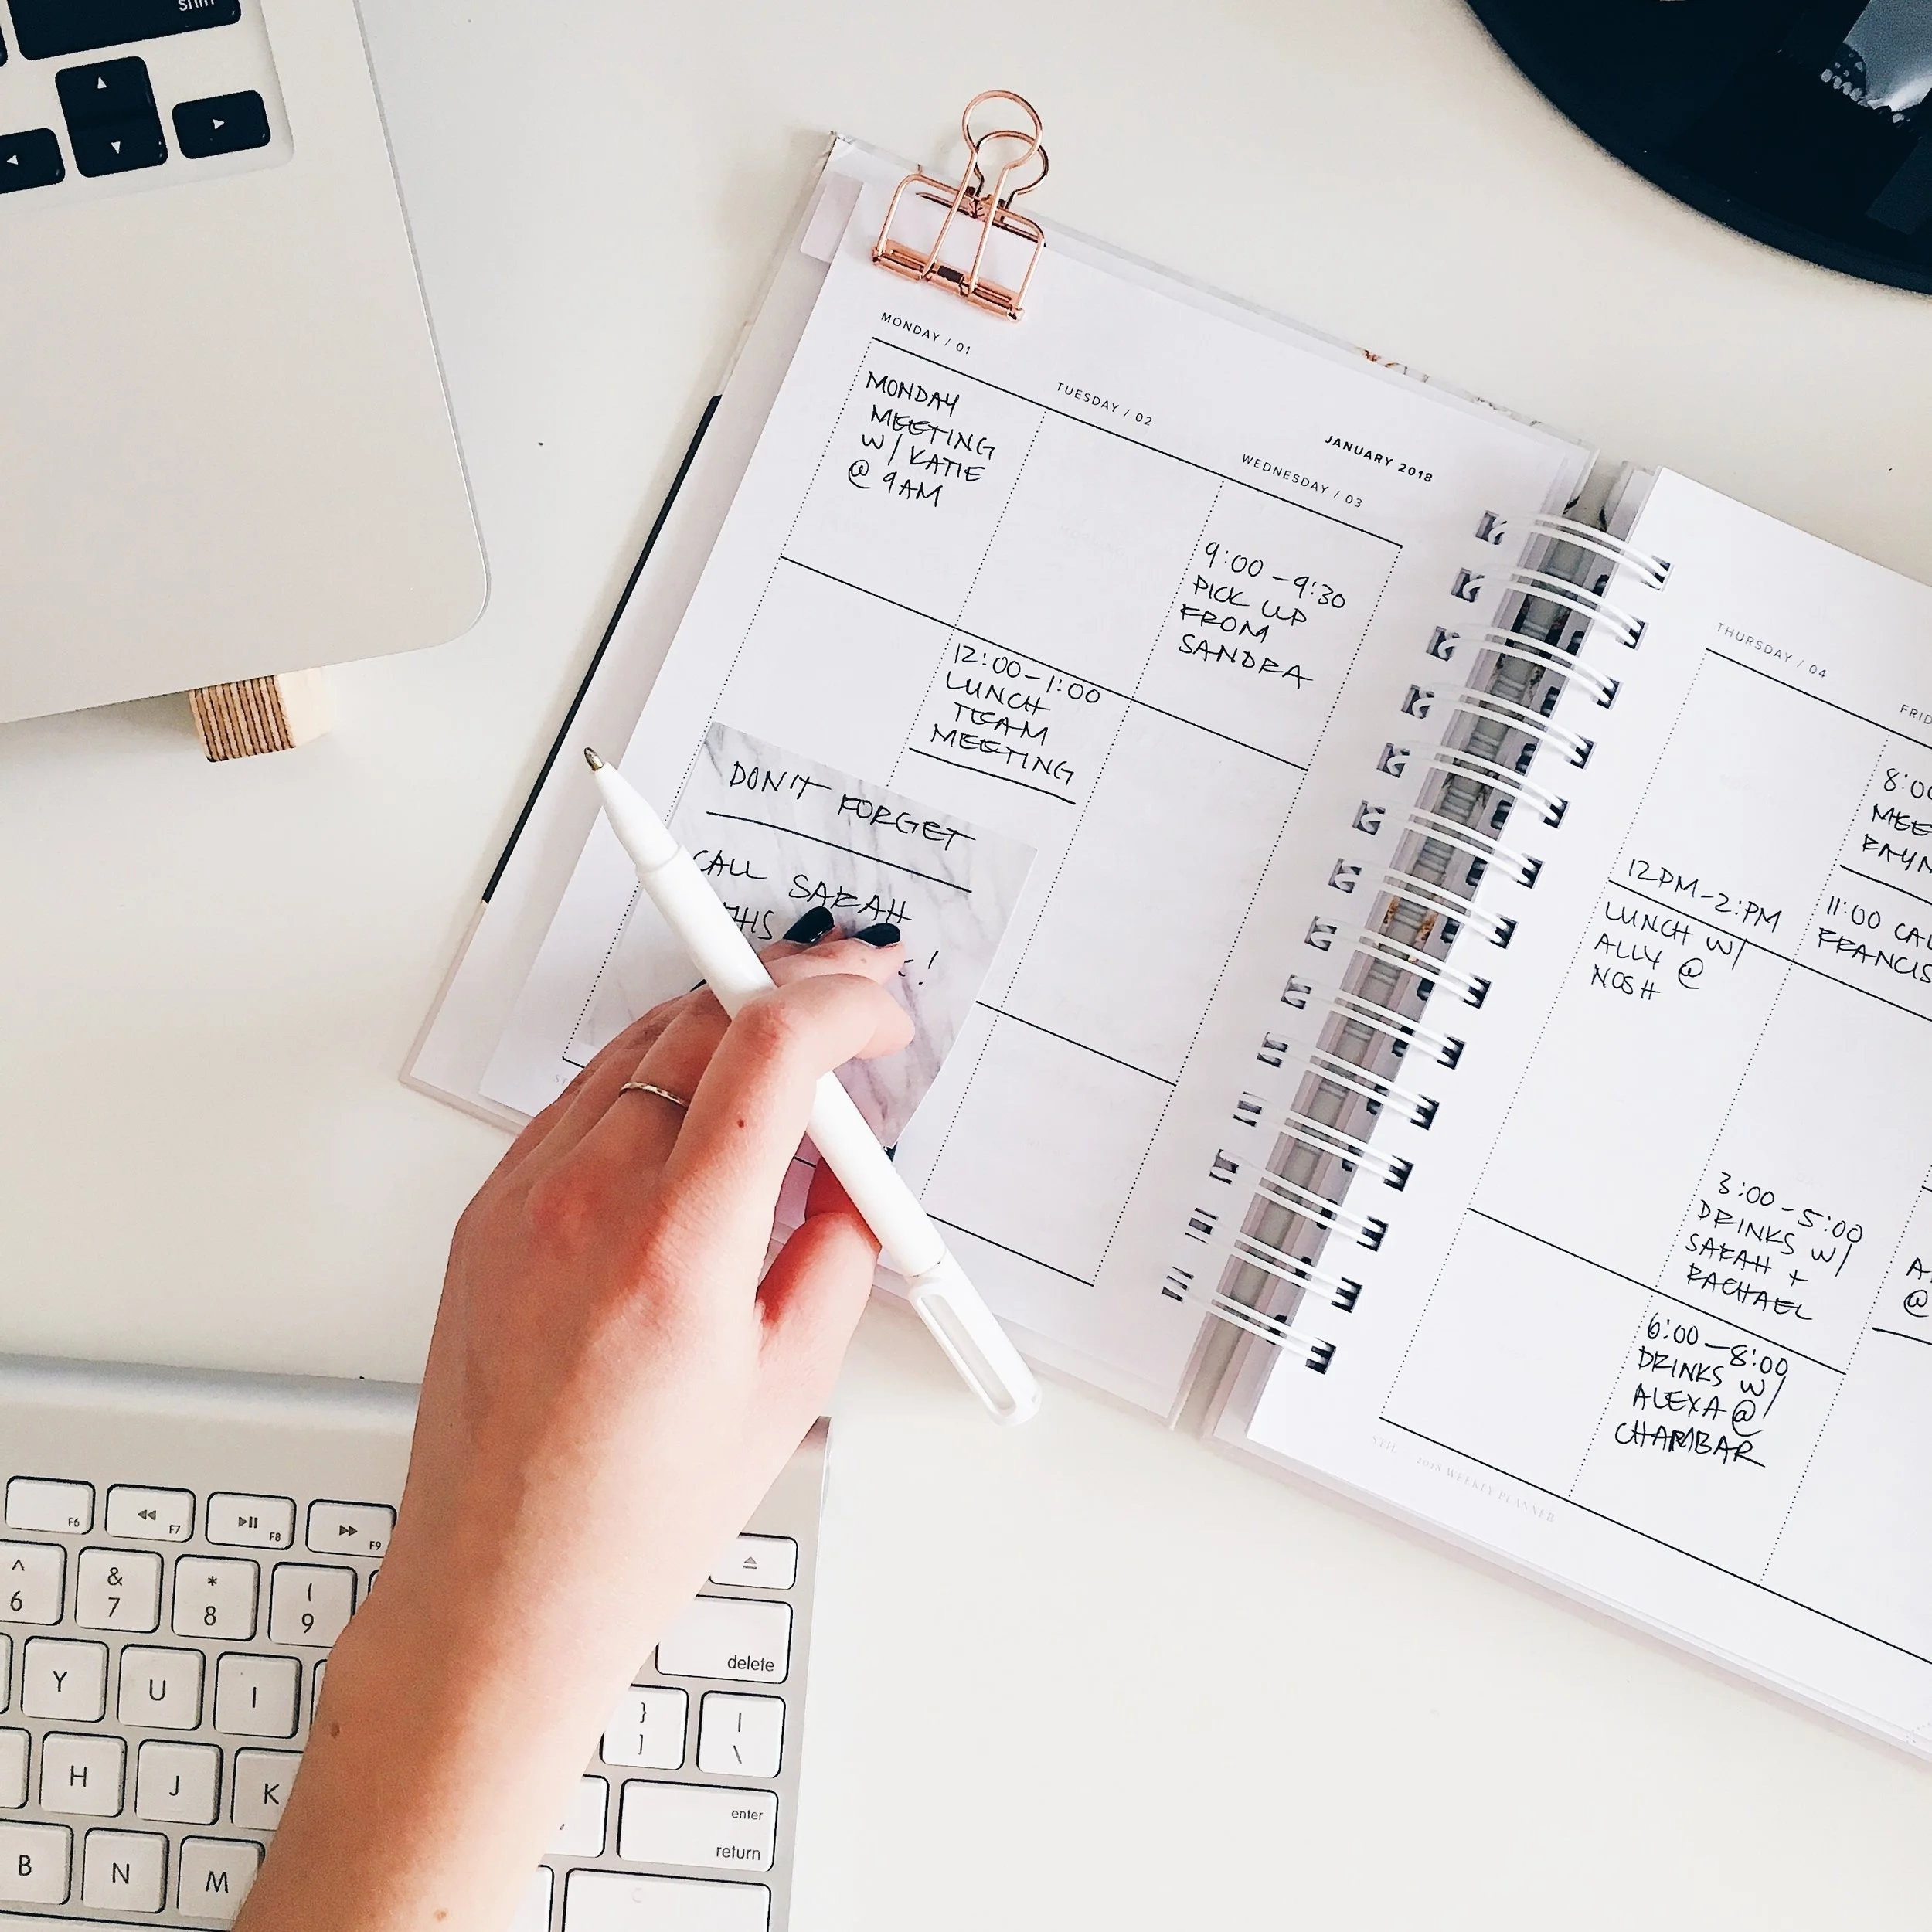 shift
MONDAY / 01
MONDAY
MEETING
W/ KATIE
@ 9AM
TUESDAY / 02
12:00-1:00
LUNCH
TEAM
MEETING
JANUARY 2018
WEDNESDAY / 03
9:00-9:30
PICK UP
FROM
SANDRA
DON'T FORGET
CALL SARAH
THIS
!
THURSDAY / 04
12PM-2:PM
LUNCH W/
ALLY @
NOSH
8:00
11:00
FRANCIS
3:00-5:00
DRINKS W/
SARAH +
RACHAEL
6:00-8:00
DRINKS W/
ALEXA @
CHAMBAR
@
2018 WEEKLY PLANNER
F6
F7
F8
F9
^
6
&
7
*
8
(
9
delete
Y
U
I
}
]
|
\
H
J
K
enter
return
B
N
M